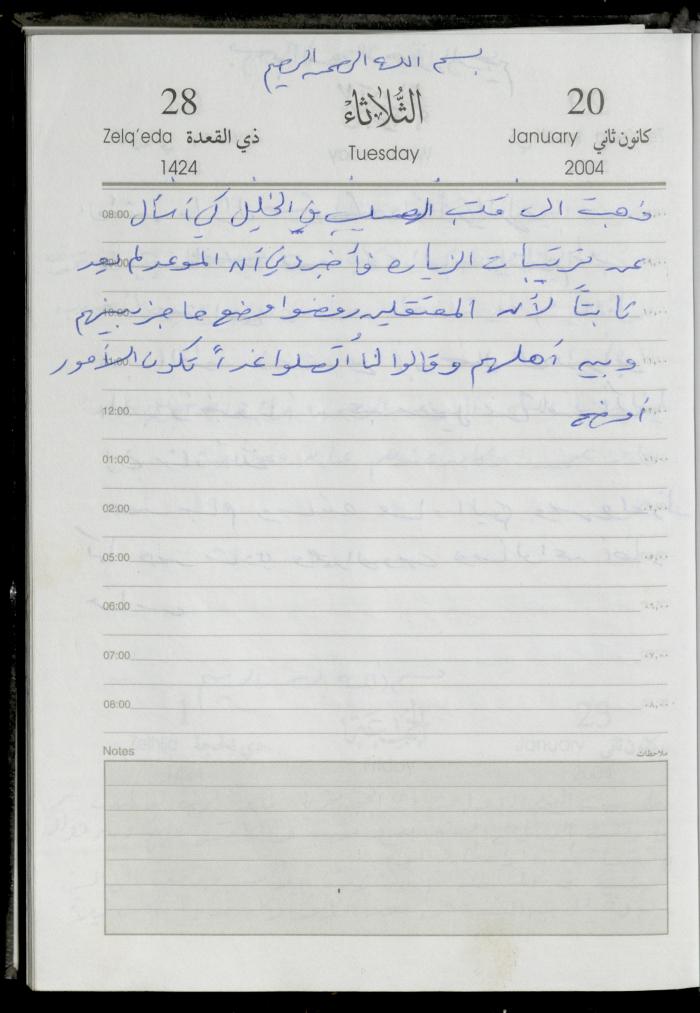 بسم الله الرحمن الرحيم
28 الثلاثاء 20
Zelq'eda ذي القعدة Tuesday January كانون ثاني
1424 2004
08:00 ذهبت الى مكتب الصليب في الخليل كي أسأل
09:00 عن ترتيبات الزياره فأخبروني أن الموعد لم يعد
10:00 ثابتاً لأن المعتقلين رفضوا وضع حاجز بينهم
11:00 وبين أهلهم وقالوا لنا أتصلوا غداً تكون الأمور
12:00 أوضح
01:00
02:00
05:00
06:00
07:00
08:00
Notes ملاحظات